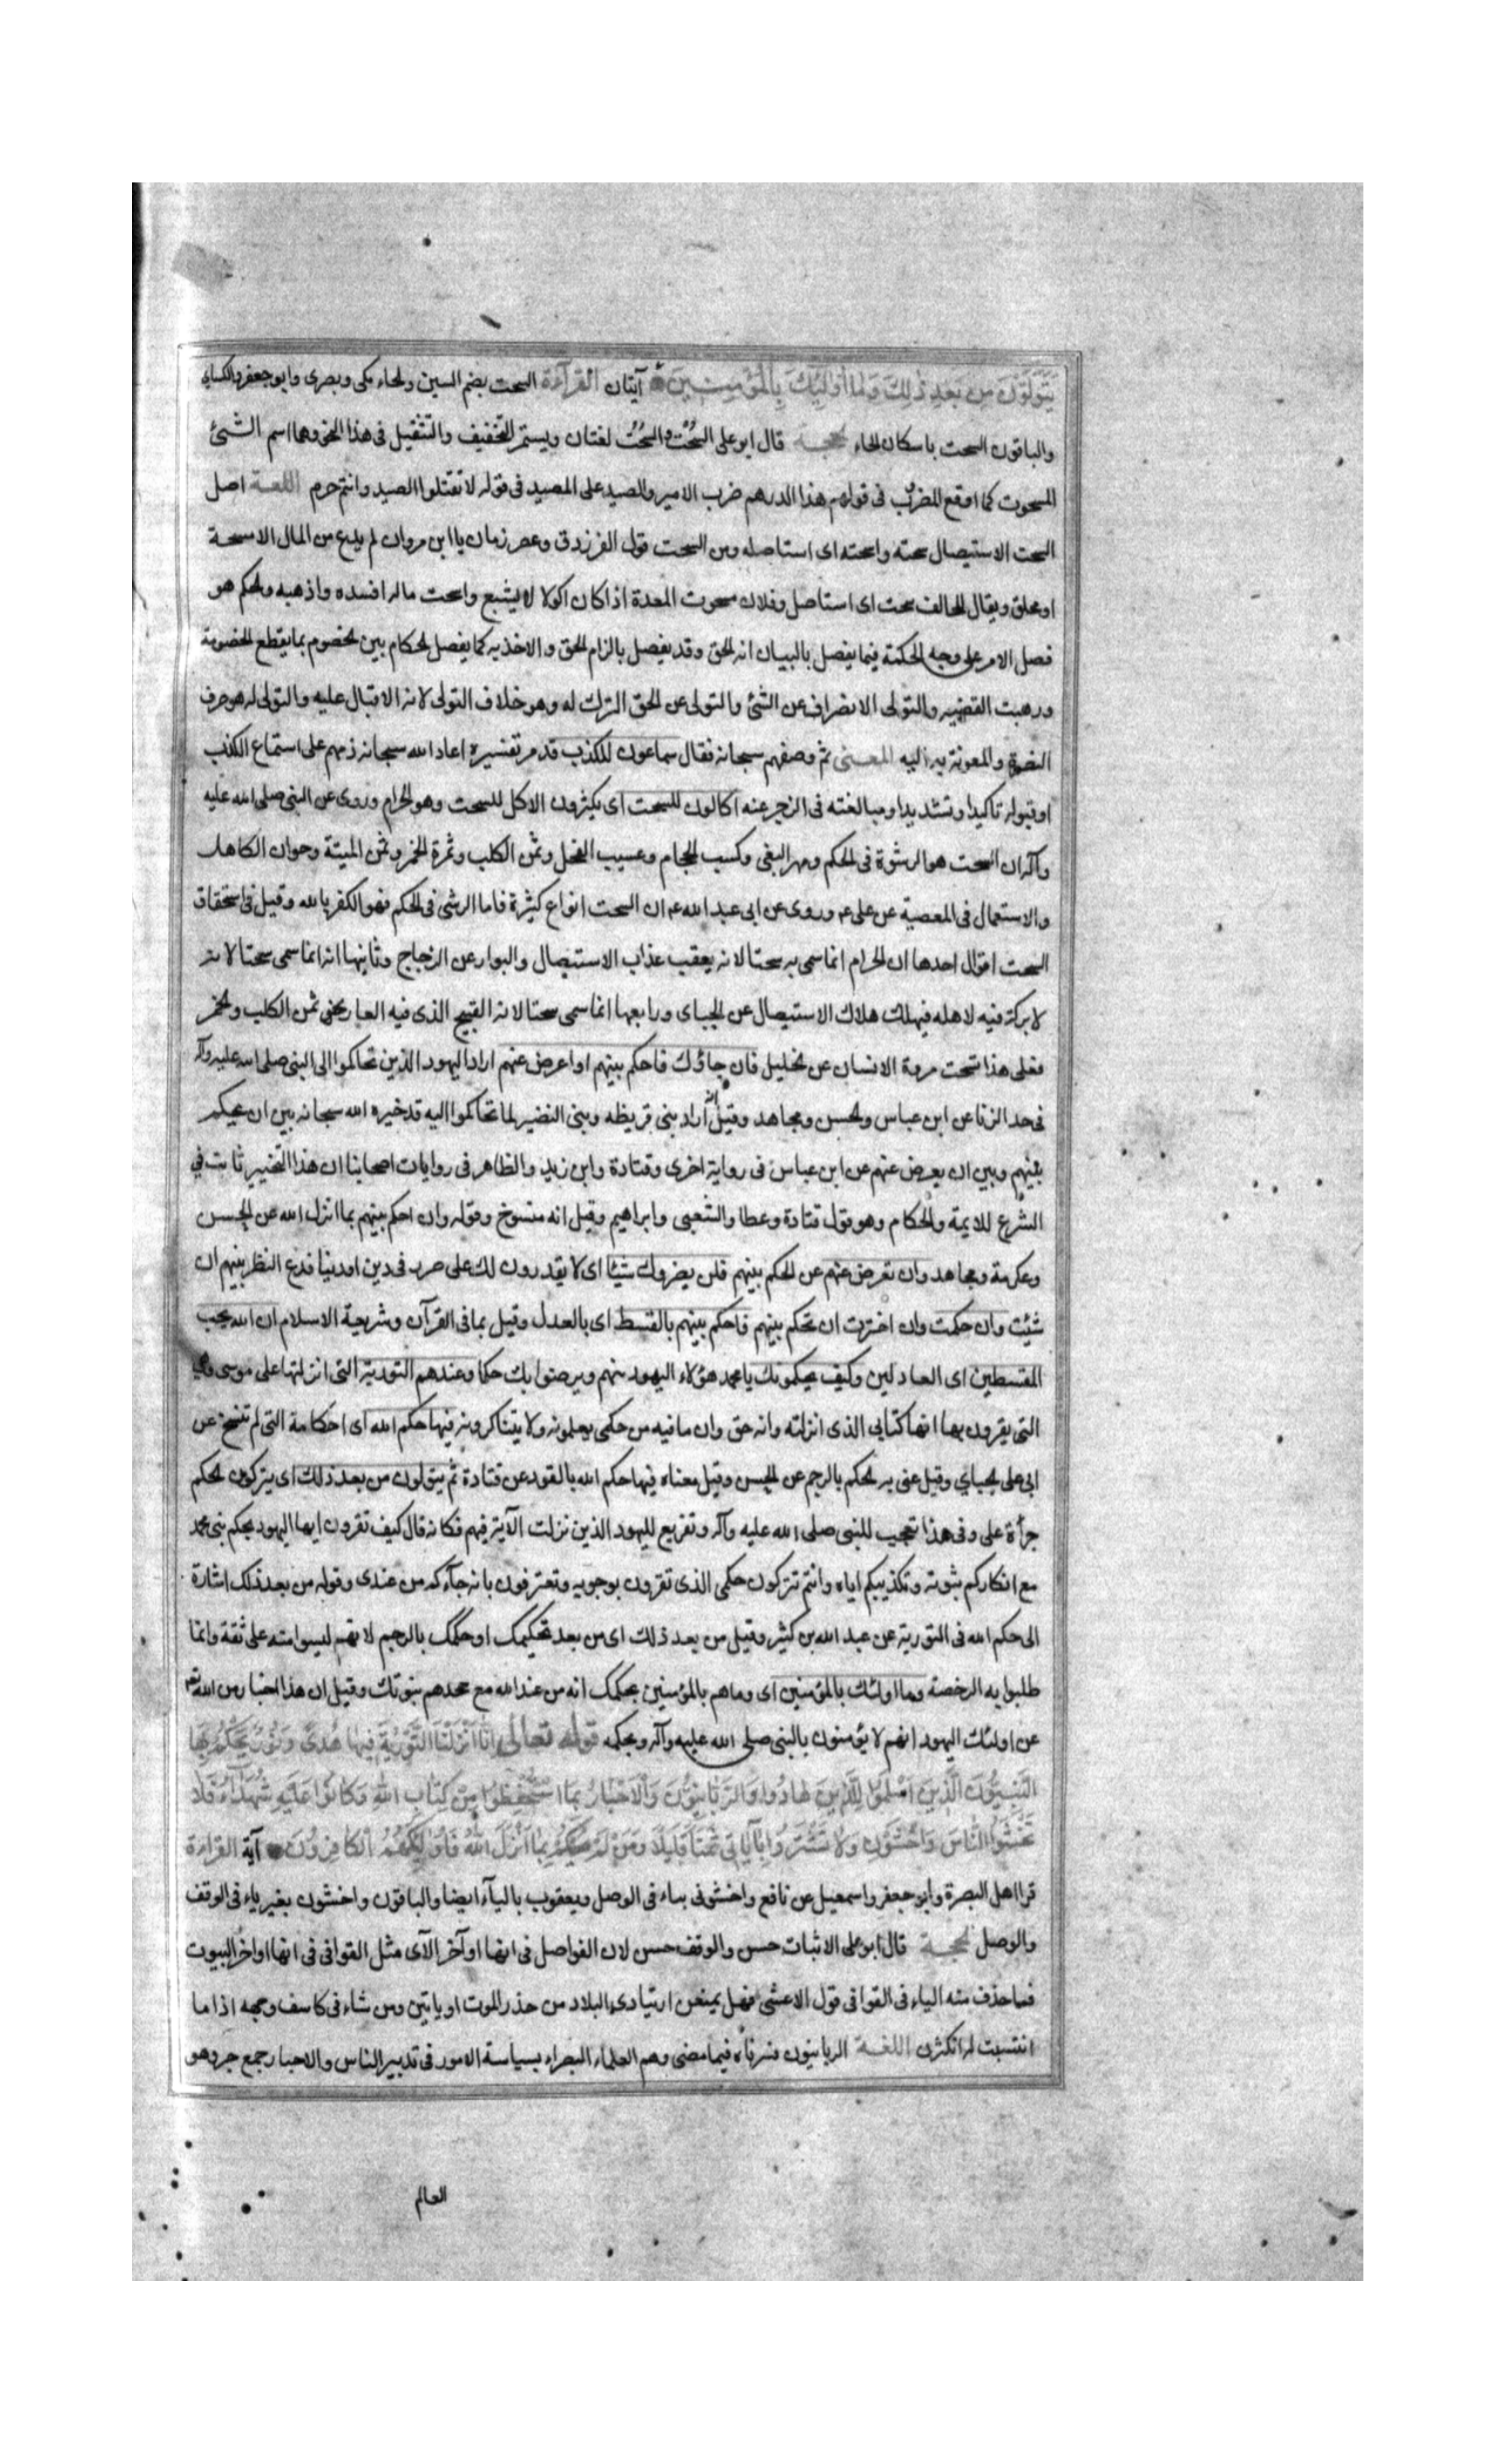 يَتَوَلَّوْنَ مِن بَعدِ ذلِكَ وَمَا أُولئِكَ بِالْمُؤمِنِينَ آيتان القراءة السحت بضم السين والحاء مكى وبصرى وابو جعفر والكساى
والباقون السحت باسكان الحاء الحجة قال ابو على السُّحْت والسُّحُت لغتان ويستمر التخفيف والتثقيل فى هذا النحو وهما اسم الشئ
المسحوت كما اوقع الضرب فى قولهم هذا الدرهم ضرب الامير والصيد على المصيد فى قوله لا تقتلوا الصيد وانتم حرم اللغة اصل
السحت الاستيصال سحته واسحته اى استاصله ومن السحت قول الفرزدق وعض زمان يا ابن مروان لم يدع من المال الا مسحة
او مجلق ويقال للحالف سحت اى استاصل وفلان مسحوت المعدة اذا كان اكولا لا يشبع واسحت ماله افسده واذهبه والحكم هو
فصل الامر على وجه الحكمة فيما يفصل بالبيان انه الحق وقد يفصل بالزام الحق والاخذ به كما يفصل الحكام بين الخصوم بما يقطع الخصومة
وبهت القضيه والتولى الانصراف عن الشئ والتولى عن الحق الترك له وهو خلاف التولى لانه الاقبال عليه والتولى له هو صرف
النصرة والمعونة به اليه المعنى ثم وصفهم سبحانه فقال سماعون للكذب قد مر تفسيره اعاد الله سبحانه ذمهم على استماع الكذب
او قبوله تاكيدا وتشديدا ومبالغته فى الزجر عنه اكالون للسحت اى يكثرون الاكل للسحت وهو الحرام وروى عن النبى صلى الله عليه
وآله ان السحت هو الرشوة فى الحكم ومهر البغى وكسب الحجام وعسيب الفحل وثمن الكلب وثمرة الخمر وثمن الميتة وحوان الكاهل
والاستعمال فى المعصية عن على ع وروى عن ابى عبد الله ع ان السحت انواع كثيرة فاما الرشى فى الحكم فهو الكفر بالله وقيل فى استحقاق
السحت اقوال احدها ان الحرام انما سمى به سحتا لانه يعقب عذاب الاستيصال والبوار عن الزجاج وثانيها انه انما سمى سحتا لانه
لا بركة فيه لاهله فيهلك هلاك الاستيصال عن الجباى ورابعها انما سمى سحتا لانه القبيح الذى فيه العار نحو ثمن الكلب والخمر
فعلى هذا تسحت مروة الانسان عن الخليل فان جاؤك فاحكم بينهم او اعرض عنهم اراد اليهود الذين تحاكموا الى النبى صلى الله عليه وآله
فى حد الزنا عن ابن عباس والحسن ومجاهد وقيل أراد بنى قريظه وبنى النضير لما تحاكموا اليه قد خيره الله سبحانه بين ان يحكم
بينهم وبين ان يعرض عنهم عن ابن عباس فى رواية اخرى وقتادة وابن زيد والظاهر فى روايات اصحابنا ان هذا التخيير ثابت فى
الشرع للايمة والحكام وهو قول قتادة وعطا والشعبى وابراهيم وقيل انه منسوخ وقوله وان احكم بينهم بما انزل الله عن الحسن
وعكرمة ومجاهد وان تعرض عنهم عن الحكم بينهم فلن يضروك شيئا اى لا يقدرون لك على ضر فى دين او دنيا فدع النظر بينهم ان
شئت وان حكمت وان اخترت ان تحكم بينهم فاحكم بينهم بالقسط اى بالعدل وقيل بما فى القرآن وشريعة الاسلام ان الله يحب
المقسطين اى العادلين وكيف يحكمونك يا محمد هؤلاء اليهود منهم ويرضوا بك حكما وعندهم التورية التى انزلتها على موسى وهى
التى يقرون بها انها كتابى الذى انزلته وانه حق وان ما فيه من حكمى يعلمونه ولا يتناكرونه فيها حكم الله اى احكامه التى لم تنسخ عن
ابى على الجباي وقيل عنى به الحكم بالرجم عن الحسن وقيل معناه فيها حكم الله بالقود عن قتادة ثم يتولون من بعد ذلك اى يتركون الحكم
جرأة على وفى هذا تعجيب للنبى صلى الله عليه وآله وتقريع لليهود الذين نزلت الآية فيهم فكانه قال كيف تقرون ايها اليهود بحكم نبى محمد
مع انكاركم نبوته وتكذيبكم اياه وانتم تتركون حكمى الذى تقرون بوجوبه وتعترفون بانه جآءكم من عندى وقوله من بعد ذلك اشارة
الى حكم الله فى التورية عن عبد الله بن كثير وقيل من بعد ذلك اى من بعد تحكيمك او حكمك بالرجم لانهم ليسوا منه على ثقة وانما
طلبوا به الرخصة وما اولئك بالمؤمنين اى وما هم بالمؤمنين بحكمك انه من عند الله مع جحدهم نبوتك وقيل ان هذا اخبار من الله تعالى
عن اولئك اليهود انهم لا يؤمنون بالنبى صلى الله عليه وآله وبحكمه قوله تعالى اِنَّا اَنْزَلْنَا التَّوْرٰيةَ فِيهَا هُدىً وَنُورٌ يَحْكُمُ بِهَا
النَّبِيُّونَ الَّذِينَ اَسْلَمُوا لِلَّذِينَ هَادُوا وَالرَّبَّانِيُّونَ وَالْاَحْبَارُ بِمَا اسْتُحْفِظُوا مِنْ كِتَابِ اللهِ وَكَانُوا عَلَيْهِ شُهَدَآءَ فَلَا
تَخْشَوُا النَّاسَ وَاخْشَوْنِ وَلَا تَشْتَرُوا بِاٰيَاتِى ثَمَنًا قَلِيلًا وَمَنْ لَمْ يَحْكُمْ بِمَا اَنْزَلَ اللهُ فَاُولٰئِكَ هُمُ الْكَافِرُونَ آية القراءة
قرا اهل البصرة وابو جعفر واسمعيل عن نافع واخشونى بياء فى الوصل ويعقوب باليآء ايضا والباقون واخشون بغير ياء فى الوقف
والوصل الحجة قال ابو على الاثبات حسن والوقف حسن لان الفواصل فى انها اوآخر الآى مثل القوافى فى انها اواخر البيوت
فمما حذف منه الياء فى القوافى قول الاعشى فهل يمنعن ارتيادى البلاد من حذر الموت ان ياتين ومن شاء فى كاسف وجهه اذا ما
انتسبت له انكرن اللغة الربانيون فسرناه فيما مضى وهم العلماء البصراء بسياسة الامور فى تدبير الناس والاحبار جمع حبر وهو
العالم